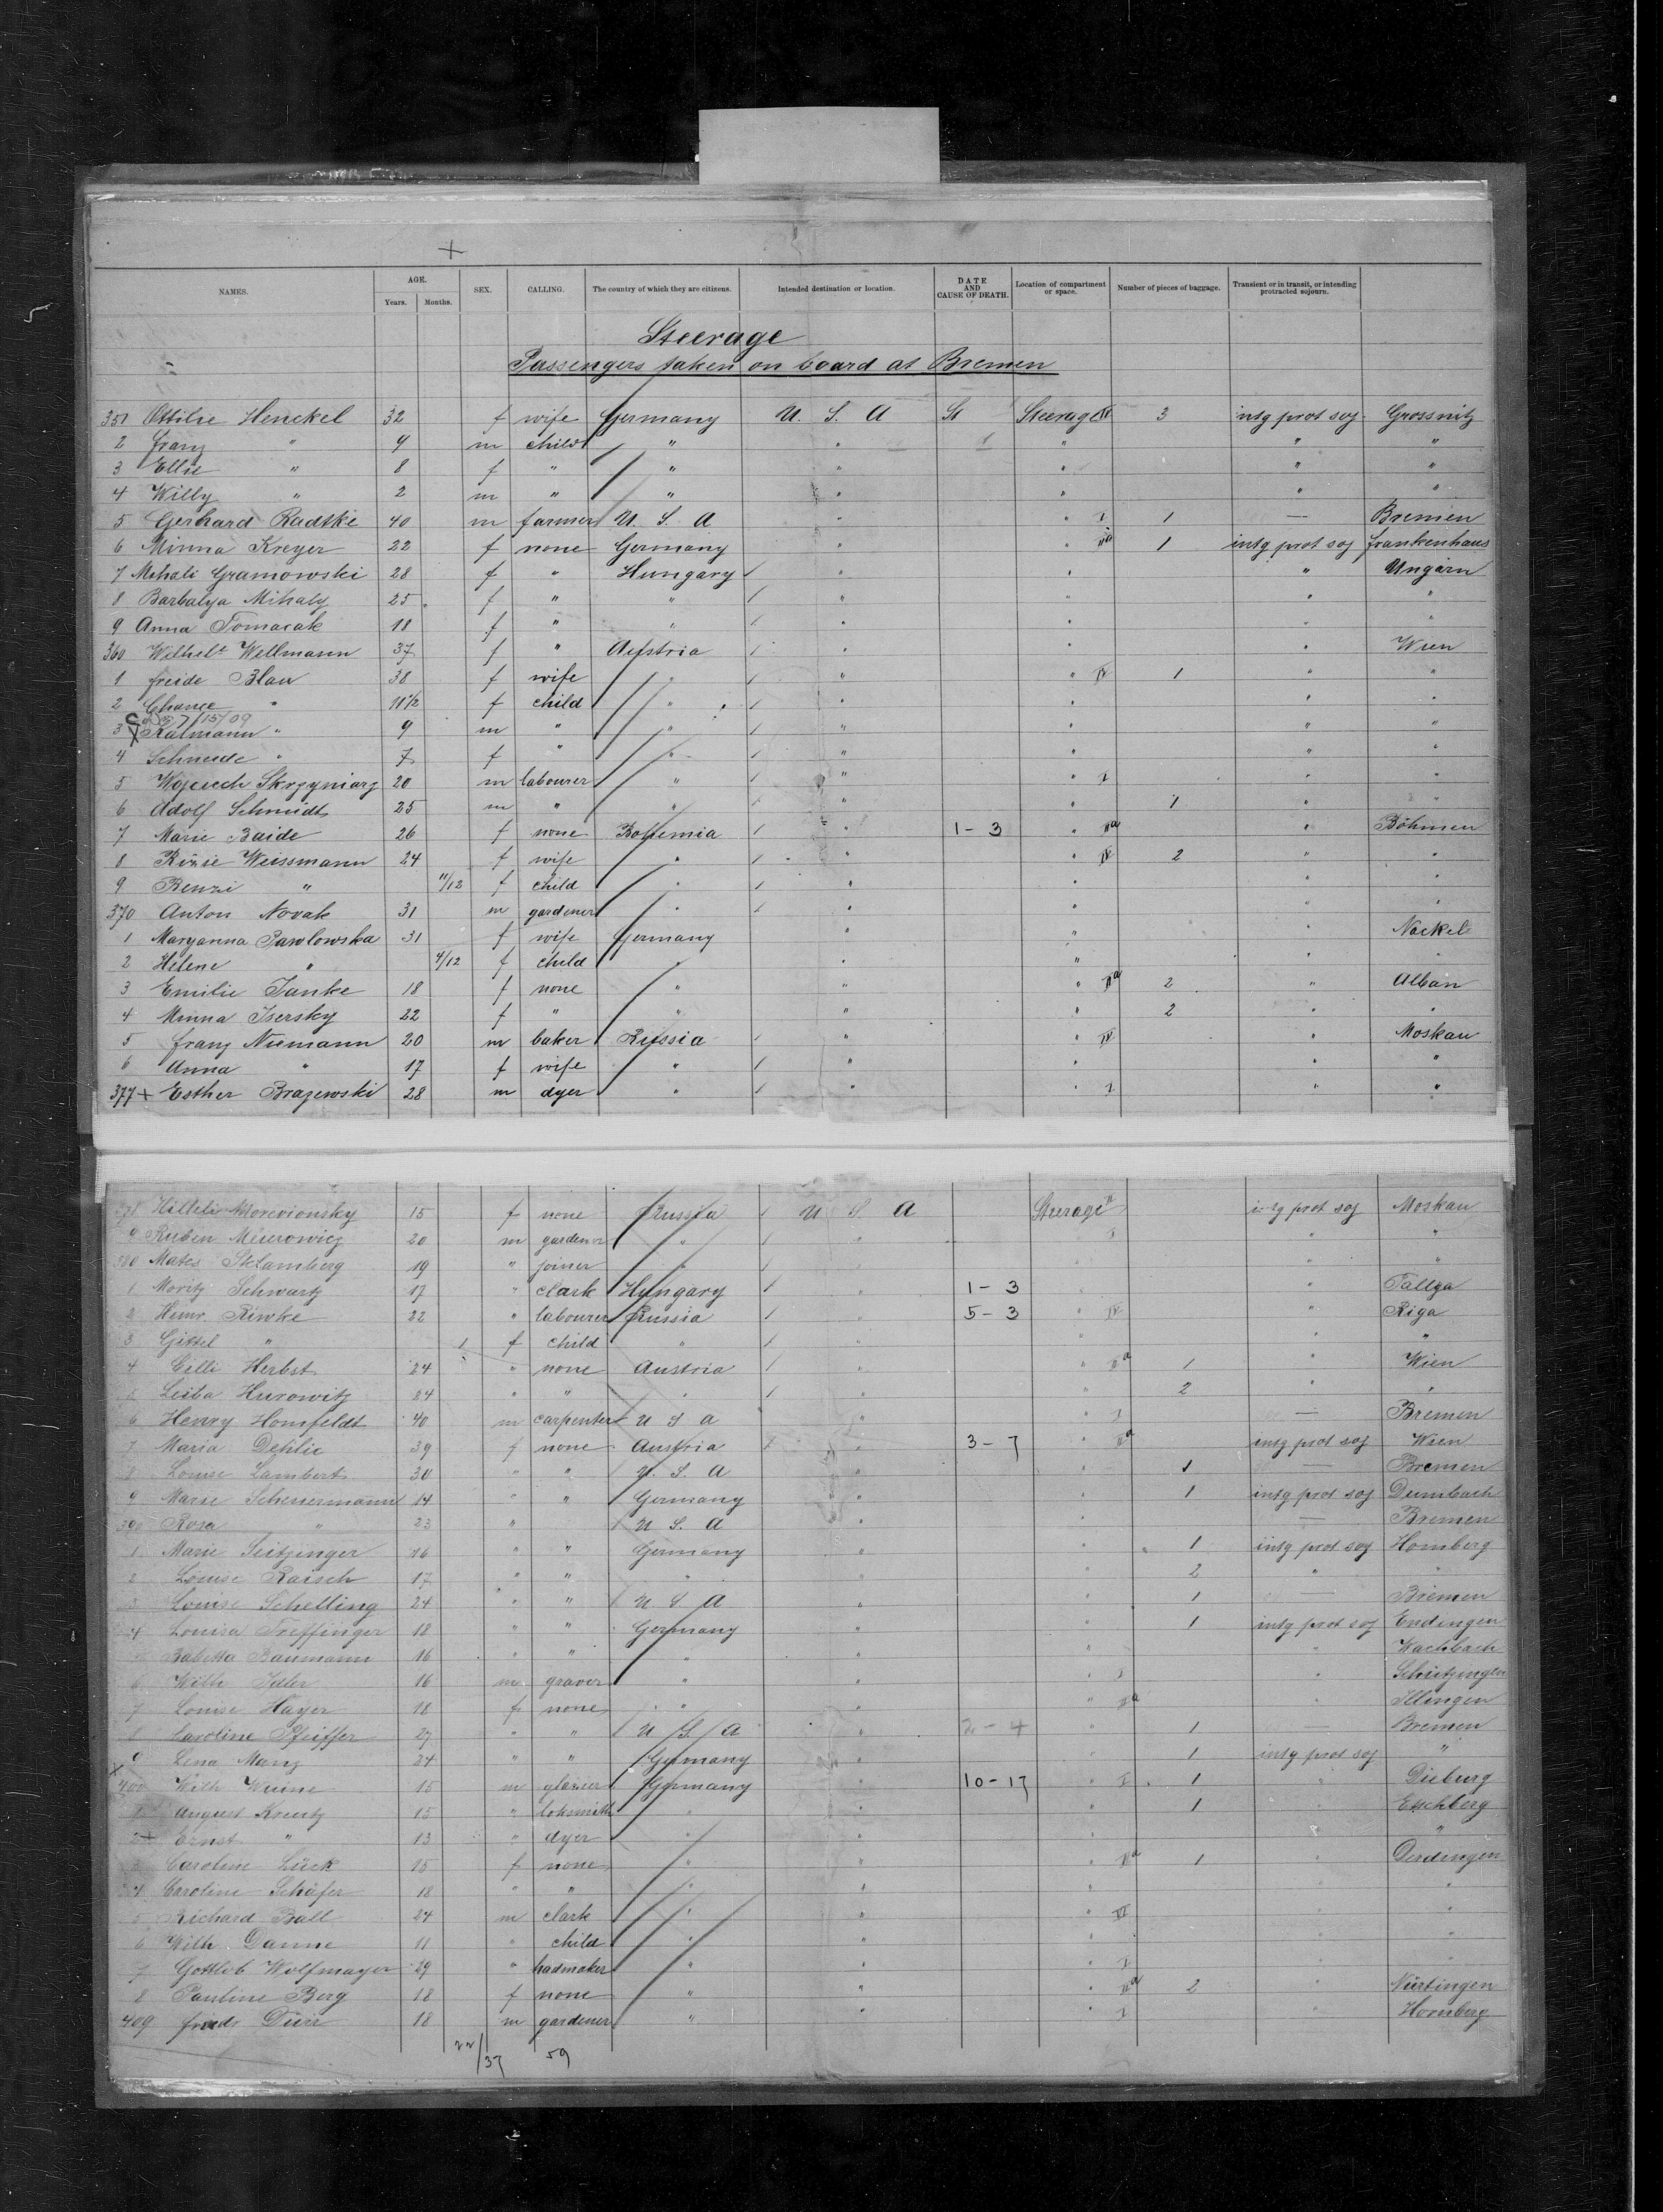 NAMES. AGE. Years. Months. SEX. CALLING. The country of which they are citizens. Intended destination or location. DATE AND CAUSE OF DEATH. Location of compartment or space. Number of pieces of baggage. Transient or in transit, or intending protracted sojourn.
Steerage
Passengers taken on board at Bremen
351 Ottilie Henckel 32 f wife Germany U. S. A St Steerage IV 3 intg prot soj Grossnitz
2 Franz " 9 m child " " " " "
3 Ellie " 8 f " " " " " "
4 Willy " 2 m " " " " " "
5 Gerhard Radtke 40 m farmer U. S. A " " I 1 — Bremen
6 Minna Kreyer 22 f none Germany " " IIa 1 intg prot soj Frankenhaus
7 Mihali Gramowski 28 f " Hungary " " " Ungarn
8 Barbalya Mihaly 25 f " " " " " "
9 Anna Tomacak 18 f " " " " " "
360 Wilhelt Wellmann 37 f " Austria " " " Wien
1 Freide Blau 38 f wife " " " IV 1 " "
2 Chance " 11 1/2 f child " " " " "
7/15/09
3 Kalmann " 9 m " " " " " "
4 Schneide " 7 f " " " " " "
5 Wojciech Skrzyniarz 20 m labourer " " " I " "
6 Adolf Schmidt 25 m " " " " 1 " "
7 Marie Baide 26 f none Bohemia " 1-3 " IIa " Böhmen
8 Rözie Weissmann 24 f wife " " " IV 2 " "
9 Renzi " 11/12 f child " " " " "
370 Anton Novak 31 m gardener " " " " "
1 Maryanna Pawlowska 31 f wife Germany " " " Nackel
2 Helene " 4/12 f child " " " " "
3 Emilie Janke 18 f none " " " IIa 2 " Alban
4 Minna Isersky 22 f " " " " 2 " "
5 Franz Niemann 20 m baker Russia " " IV " Moskau
6 Anna " 17 f wife " " " " "
377 + Esther Brazewski 28 m dyer " " " I " "
378 Morevionsky 15 f none Russia U S A Steerage II intg prot soj Moskau
9 Ruben Meierowicz 20 m gardener " " " I " "
380 Mates Sklamberg 19 " joiner " " " " "
1 Moritz Schwartz 17 " clark Hungary " 1-3 " " Tallya
2 Heinr. Riwke 22 " labourer Russia " 5-3 " IV " Riga
3 Gittel " 1 f child " " " " "
4 Cilli Herbst 24 " none Austria " " IIa 1 " Wien
5 Leiba Hurowitz 24 " " " " " 2 " "
6 Henry Homfeldt 40 m carpenter U S A " " I — Bremen
7 Maria 39 f none Austria " 3-7 " IIa intg prot soj Wien
8 Louise Lambert 30 " " U. S. A " " 1 — Bremen
9 Marie Scheuermann 14 " " Germany " " 1 intg prot soj Dumbach
390 Rosa " 23 " U S. A " " — Bremen
1 Marie Seitzinger 16 " " Germany " " 1 intg prot soj Homberg
2 Louise Raisch 17 " " " " " 2 " "
3 Louise Schelling 24 " " U S A " " 1 — Bremen
4 Louisa Treffinger 18 " " Germany " " 1 intg prot soj Endingen
5 Babetta Baumann 16 " " " " " " Wachbach
6 Wilh Idler 16 m graver " " " I " Schützingen
7 Louise Hayer 18 f none " " " IIa " Illingen
8 Caroline Pfeiffer 27 " " U S A " 2-4 " 1 — Bremen
9 Lena Manz 24 " " Germany " 1 intg prot soj "
400 Wilh 15 m glazier Germany " 10-17 " I 1 " Dieburg
1 August Kreutz 15 " loksmith " " " 1 " Eschberg
2 + Ernst " 13 " dyer " " " " "
3 Caroline Lück 15 f none " " " IIa 1 " Derdingen
4 Caroline Schäfer 18 " " " " " " "
5 Richard Ball 24 m clark " " " IV " "
6 Wilh. Danne 11 " child " " " " "
7 Gottlob Wolfmayer 29 " hadmaker " " " I " "
8 Pauline Berg 18 f none " " " IIa 2 " Nürtingen
409 Friedr Dürr 18 m gardener " " " I " Hornberg
22/37 59